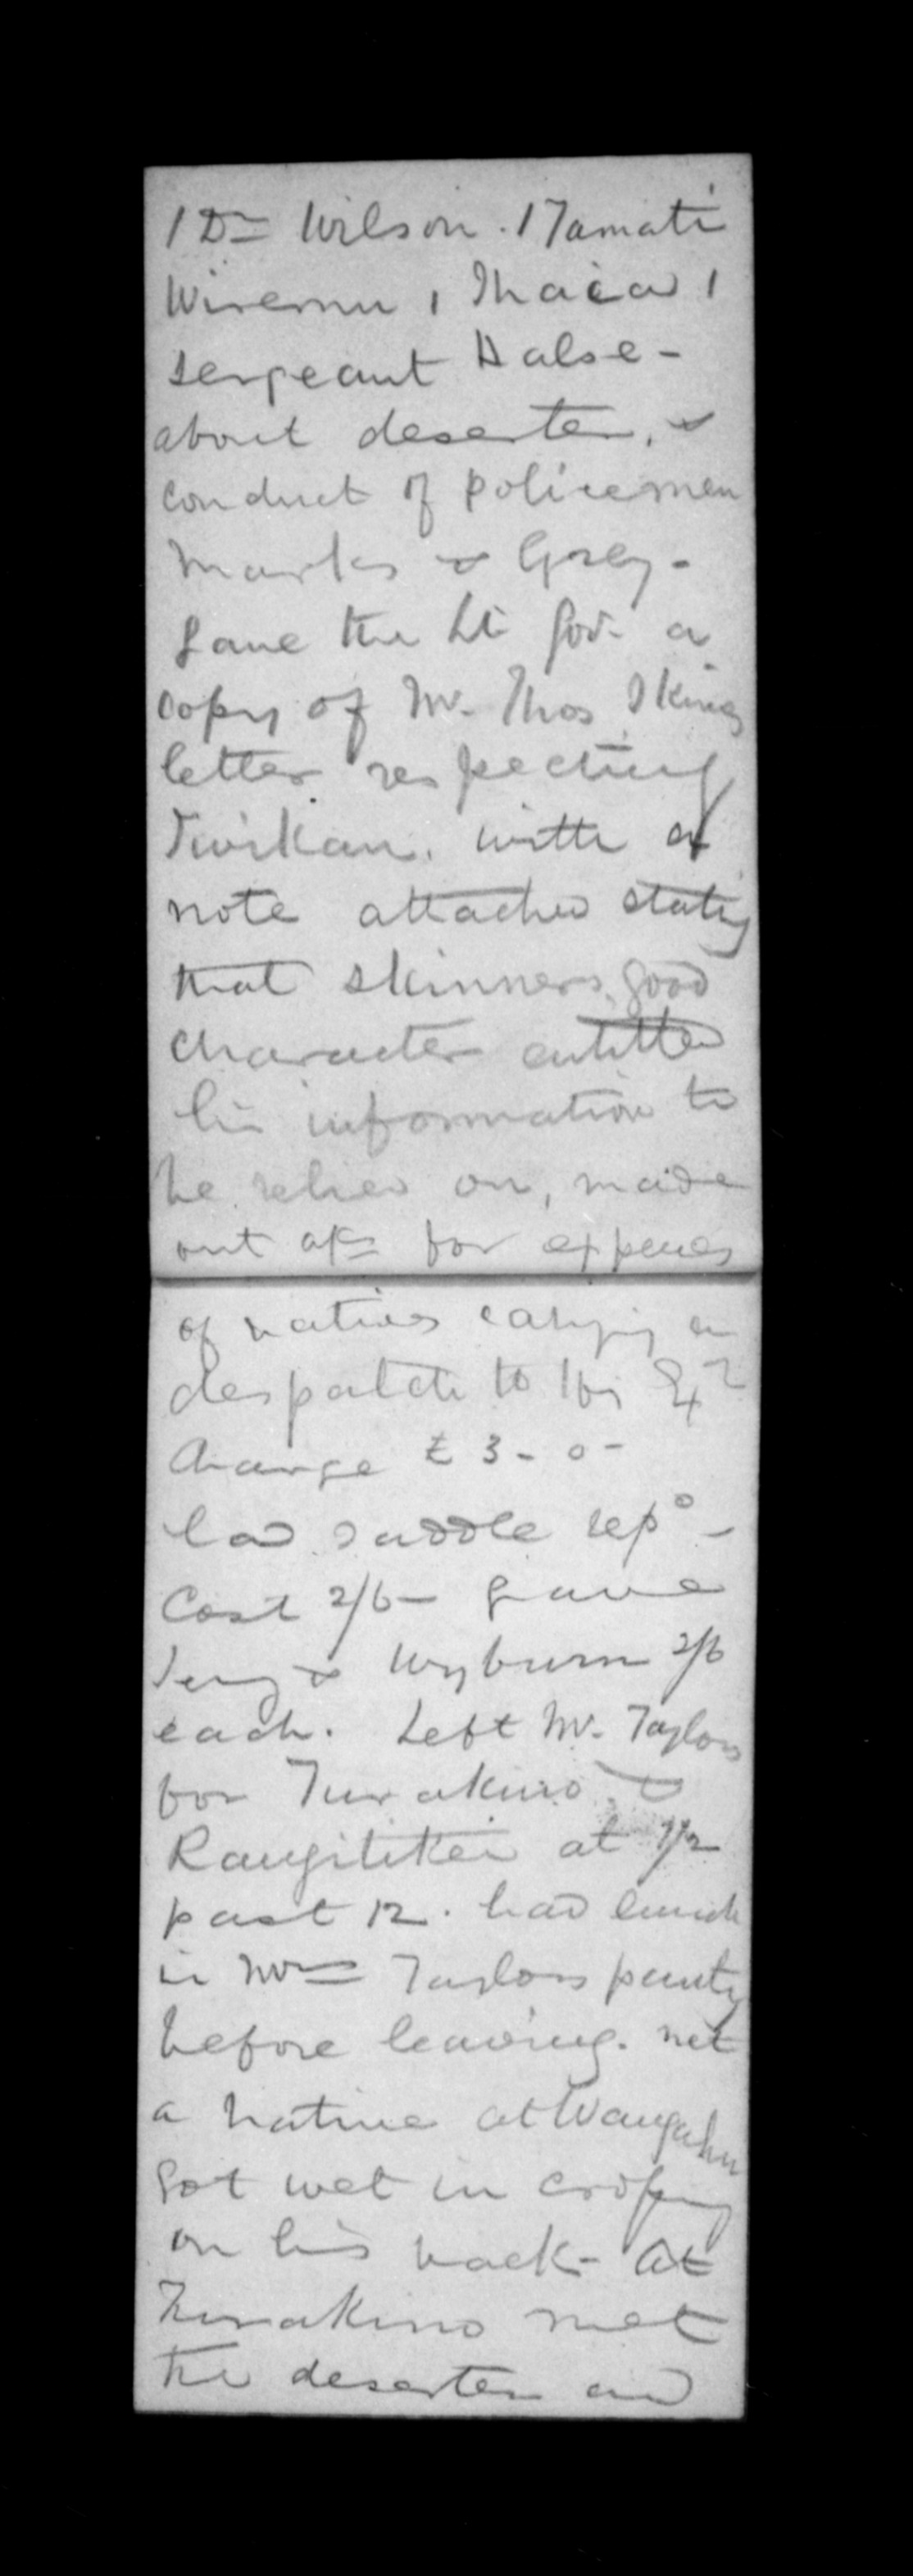 1 Dr Wilson. 1 Tamati
Wiremu, 1 Ihaia 1
Sergeant Halse -
about deserter, &
conduct of policemen
Marks & Grey -
Gave the Lt Govr a
copy of Mr. Thos King
letter respecting
with a
note attached stating
that Skinners good
character entitled
his information to
be relied on, made
out a/cs for expenses
of natives carrying on
despatch to his Exy
Charge £3-0-
had saddle repd -
Cost 2/6 - gave
& Wyburn 2/6
each. Left Mr. Taylors
for Turakino &
Rangitikei at 1/2
past 12. had lunch
in Mrs Taylors pantry
before leaving. met
a native at Wangahu
got wet in crossing
on his back - At
Turakino met
the deserter and